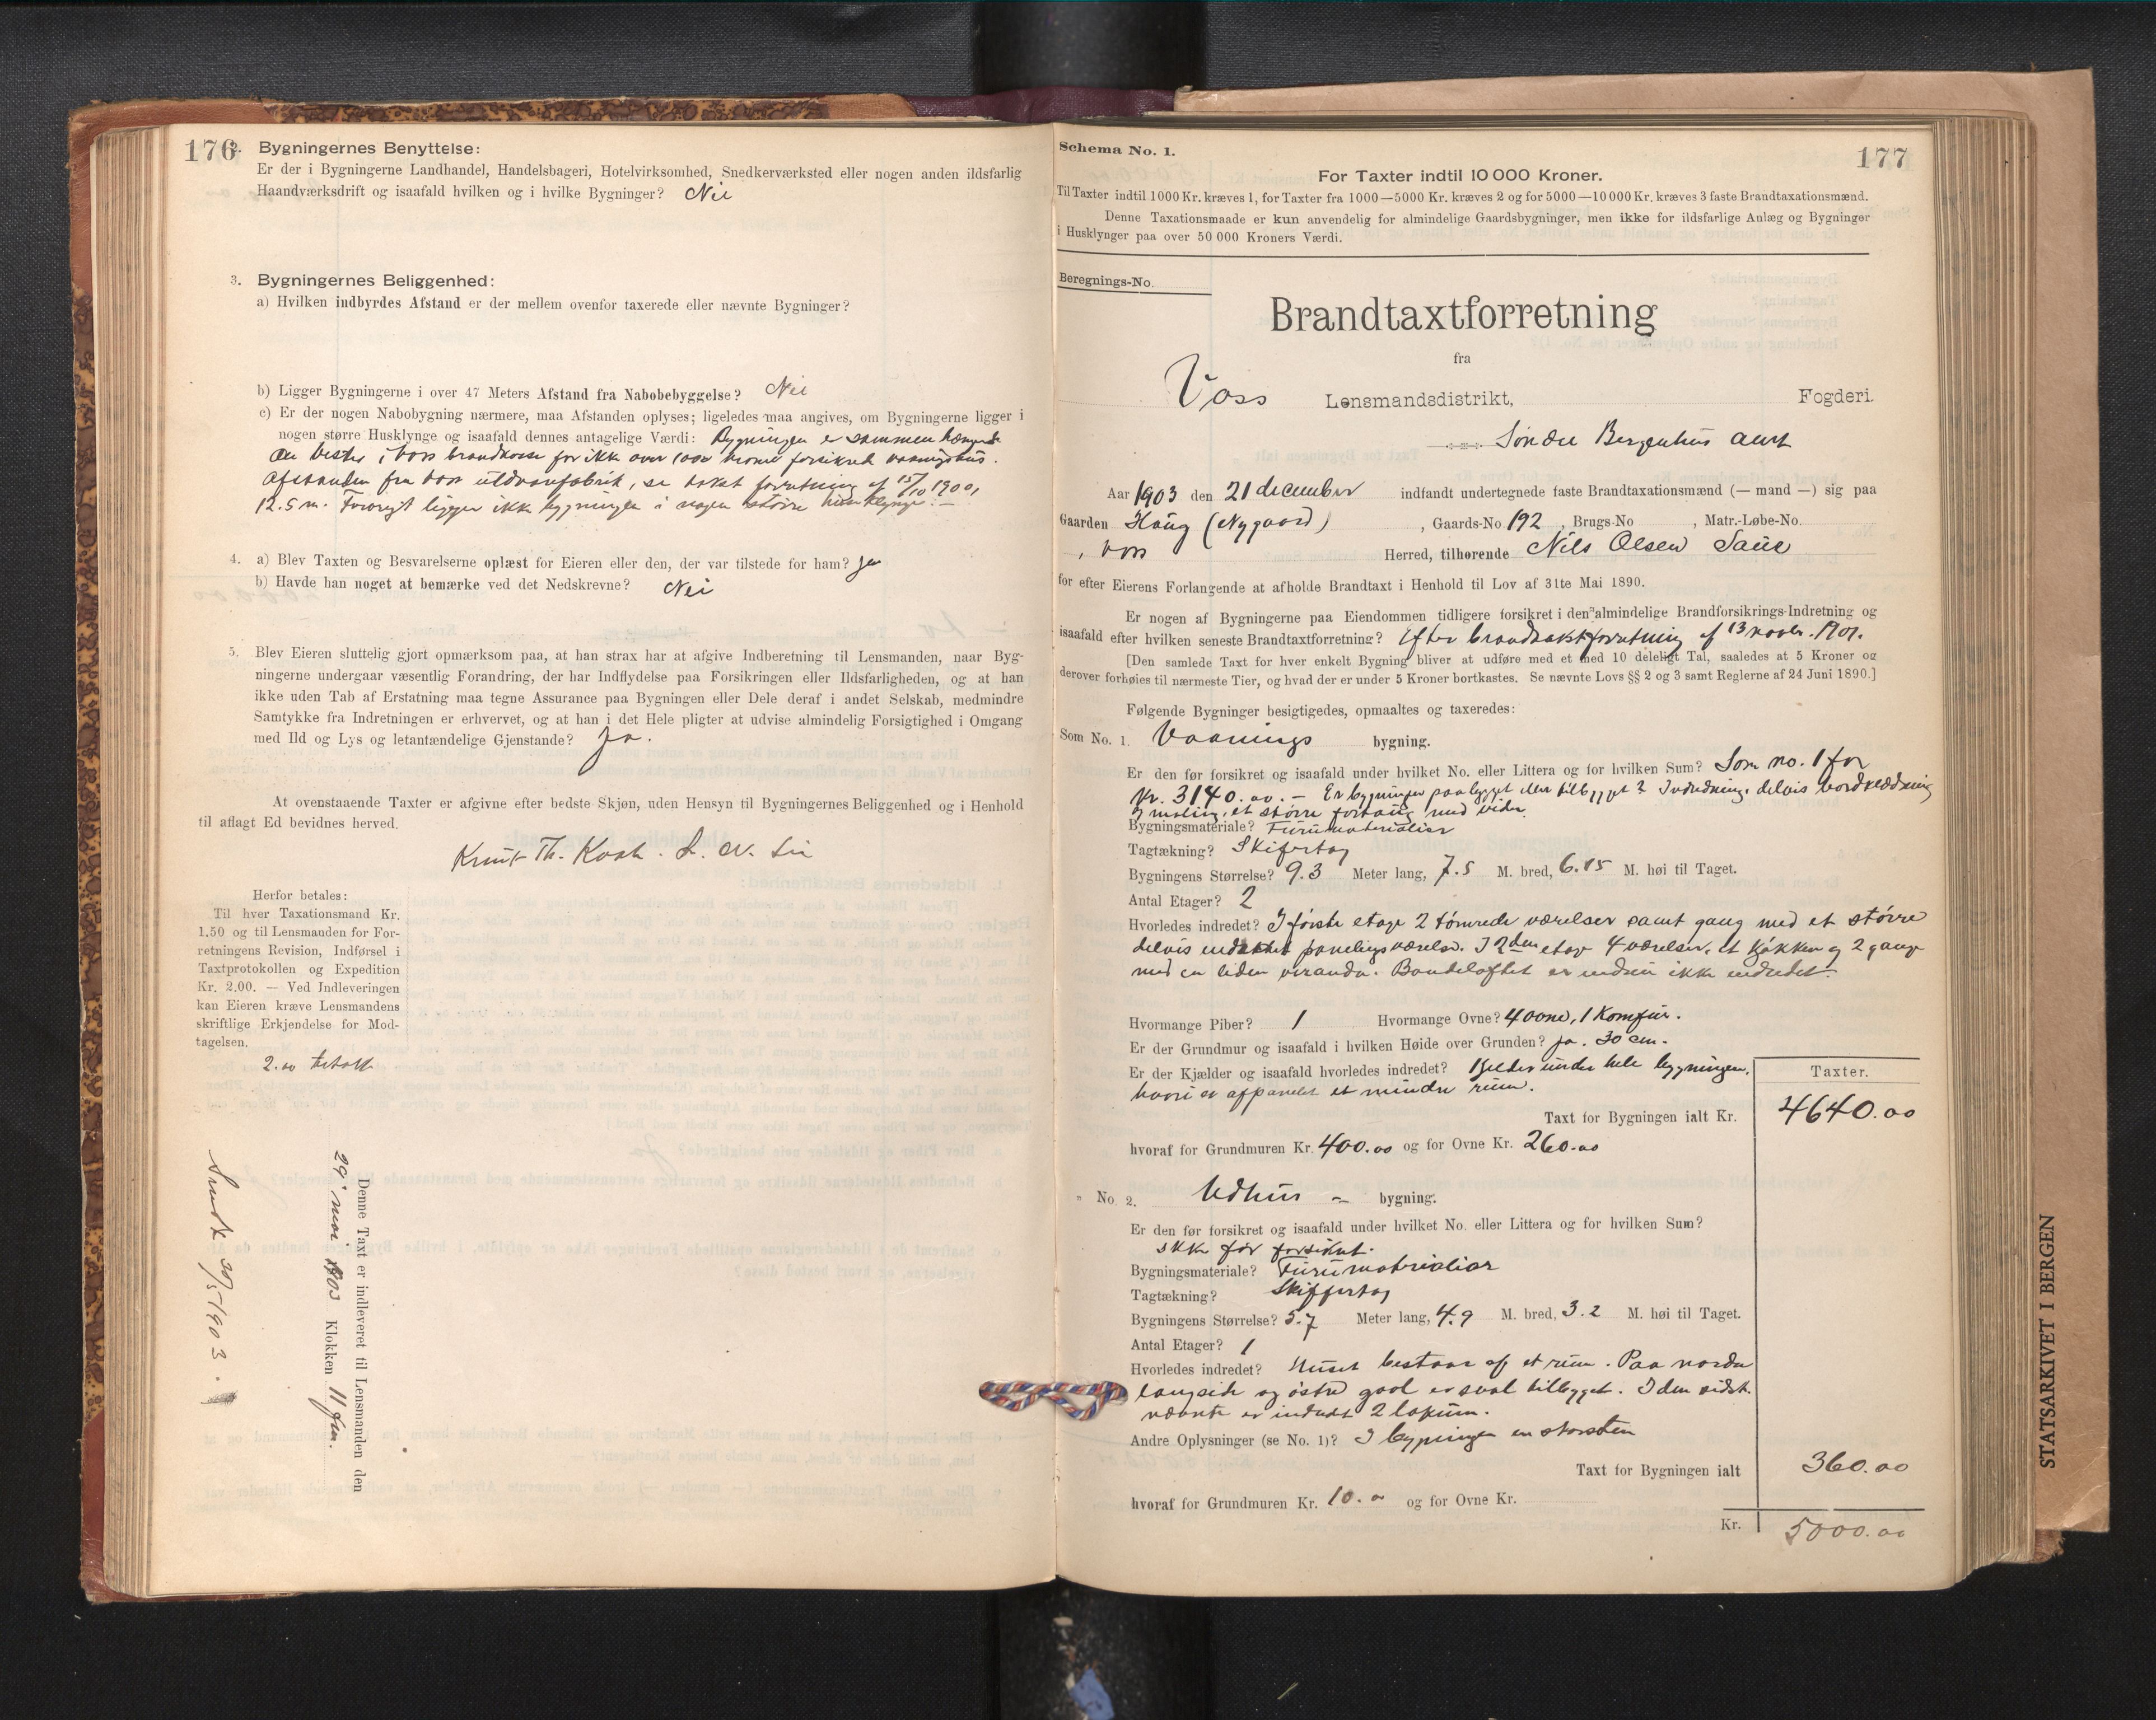 176
2. Bygningernes Benyttelse:
Er der i Bygningerne Landhandel, Handelsbageri, Hotelvirksomhed, Snedkerværksted eller nogen anden ildsfarlig
Haandværksdrift og isaafald hvilken og i hvilke Bygninger? Nei
3. Bygningernes Beliggenhed:
a) Hvilken indbyrdes Afstand er der mellem ovenfor taxerede eller nævnte Bygninger?
b) Ligger Bygningerne i over 47 Meters Afstand fra Nabobebyggelse? Nei
c) Er der nogen Nabobygning nærmere, maa Afstanden oplyses; ligeledes maa angives, om Bygningerne ligger i
nogen større Husklynge og isaafald dennes antagelige Værdi: Bygningen er sammenhængende
i Voss brandkasse for ikke over 1000 kroner forsikred vaaningshus.
Afstanden fra Voss uldvarefabrik, se takst forretning af 15/10 1900,
12.5 m. Forøvrigt ligger ikke bygningen i nogen større husklynge. —
4. a) Blev Taxten og Besvarelserne oplæst for Eieren eller den, der var tilstede for ham? Ja
b) Havde han noget at bemærke ved det Nedskrevne? Nei
5. Blev Eieren sluttelig gjort opmærksom paa, at han strax har at afgive Indberetning til Lensmanden, naar Byg-
ningerne undergaar væsentlig Forandring, der har Indflydelse paa Forsikringen eller Ildsfarligheden, og at han
ikke uden Tab af Erstatning maa tegne Assurance paa Bygningen eller Dele deraf i andet Selskab, medmindre
Samtykke fra Indretningen er erhvervet, og at han i det Hele pligter at udvise almindelig Forsigtighed i Omgang
med Ild og Lys og letantændelige Gjenstande? Ja.
At ovenstaaende Taxter er afgivne efter bedste Skjøn, uden Hensyn til Bygningernes Beliggenhed og i Henhold
til aflagt Ed bevidnes herved.
Knut Th. Kvale. L. N. Lie
Herfor betales:
Til hver Taxationsmand Kr.
1,50 og til Lensmanden for For-
retningens Revision, Indførsel i
Taxtprotokollen og Expedition
Kr. 2.00. — Ved Indleveringen
kan Eieren kræve Lensmandens
skriftlige Erkjendelse for Mod-
tagelsen.
2.00 betalt
Denne Taxt er indleveret til Lensmanden den
29. mai 1903 Klokken 11 fm.
Sendt 30/5-1903.
Schema No. 1.
177
For Taxter indtil 10 000 Kroner.
Til Taxter indtil 1000 Kr. kræves 1, for Taxter fra 1000—5000 Kr. kræves 2 og for 5000—10 000 Kr. kræves 3 faste Brandtaxationsmænd.
Denne Taxationsmaade er kun anvendelig for almindelige Gaardsbygninger, men ikke for ildsfarlige Anlæg og Bygninger
i Husklynger paa over 50 000 Kroners Værdi.
Beregnings-No.
Brandtaxtforretning
fra
Voss Lensmandsdistrikt, Fogderi.
Søndre Bergenhus amt
Aar 1903 den 21 december indfandt undertegnede faste Brandtaxationsmænd (— mand —) sig paa
Gaarden Haug (Nygaard), Gaards-No 192, Brugs-No , Matr.-Løbe-No.
, Voss Herred, tilhørende Nils Olsen Saue
for efter Eierens Forlangende at afholde Brandtaxt i Henhold til Lov af 31te Mai 1890.
Er nogen af Bygningerne paa Eiendommen tidligere forsikret i den almindelige Brandforsikrings-Indretning og
isaafald efter hvilken seneste Brandtaxtforretning? Efter brandtakstforretning af 13 novbr. 1901.
[Den samlede Taxt for hver enkelt Bygning bliver at udføre med et med 10 deleligt Tal, saaledes at 5 Kroner og
derover forhøies til nærmeste Tier, og hvad der er under 5 Kroner bortkastes. Se nævnte Lovs §§ 2 og 3 samt Reglerne af 24 Juni 1890.]
Følgende Bygninger besigtigedes, opmaaltes og taxeredes:
Som No. 1. Vaanings bygning.
Er den før forsikret og isaafald under hvilket No. eller Littera og for hvilken Sum? Som no. 1 for
kr. 3140.00. — Er bygningen paabygget eller tilbygget? Indredning, delvis bordklædning
og maling, et større fortaug med videre
Bygningsmateriale? Furumaterialier
Tagtækning? Skifertag
Bygningens Størrelse? 9.3 Meter lang, 7.5 M. bred, 6.15 M. høi til Taget.
Antal Etager? 2
Hvorledes indredet? I første etage 2 tømrede værelser samt gang med et større
delvis indredet panelingsværelse. I 2den etage 4 værelser, et kjøkken og 2 gange
med en liden veranda. Bondeloftet er endnu ikke indredet.
Hvormange Piber? 1 Hvormange Ovne? 4 ovne, 1 Komfur.
Er der Grundmur og isaafald i hvilken Høide over Grunden? ja. 30 cm.
Er der Kjælder og isaafald hvorledes indredet? Kjelder under hele bygningen,
hvori er afpanelet et mindre rum.
Taxter.
Taxt for Bygningen ialt Kr. 4640.00
hvoraf for Grundmuren Kr. 400.00 og for Ovne Kr. 260.00
" No. 2. Udhus — bygning.
Er den før forsikret og isaafald under hvilket No. eller Littera og for hvilken Sum?
Ikke før forsikret.
Bygningsmateriale? Furumaterialier
Tagtækning? Skiffertag
Bygningens Størrelse? 5.7 Meter lang, 4.9 M. bred, 3.2 M. høi til Taget.
Antal Etager? 1
Hvorledes indredet? Huset bestaar af et rum. Paa nordre
langside og østre gavl er sval tilbygget. I den sidst-
nævnte er indredet 2 lokum.
Andre Oplysninger (se No. 1)? I bygningen en skorsten
Taxt for Bygningen ialt 360.00
hvoraf for Grundmuren Kr. 10.00 og for Ovne Kr.
Kr. 5000.00
STATSARKIVET I BERGEN